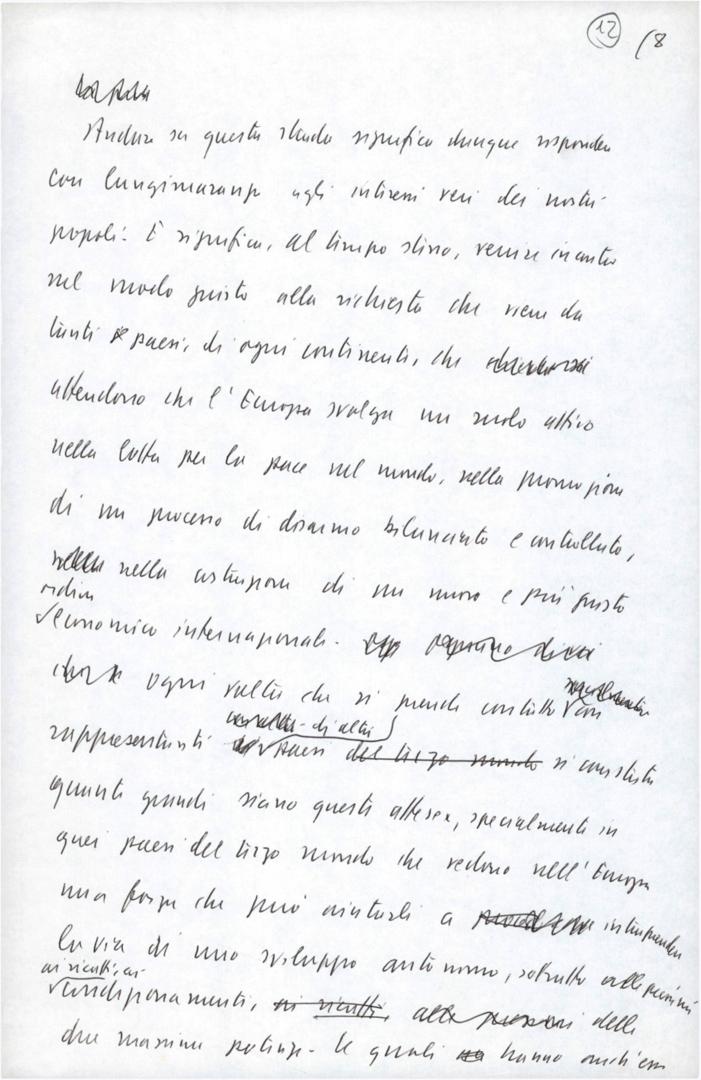 12 18
Andare su questa strada significa dunque rispondere
con lungimiranza agli interessi veri dei nostri
popoli. E significa, al tempo stesso, venire incontro
nel modo giusto alla richiesta che viene da
tanti paesi, di ogni continente, che
attendono che l'Europa svolga un ruolo attivo
nella lotta per la pace nel mondo, nella promozione
di un processo di disarmo bilanciato e controllato,
nella nella costruzione di un nuovo e più giusto
ordine
economico internazionale.
ogni volta che si prende contatto con
di altri
rappresentanti paesi del terzo mondo si constata
quanto grandi siano queste attese, specialmente in
quei paesi del terzo mondo che vedono nell'Europa
una forza che può aiutarli a intraprendere
la via di uno sviluppo autonomo, sottratto alle pressioni
ai ricatti, ai
condizionamenti, ai ricatti, alle pressioni delle
due massime potenze. Le quali hanno anch'esse